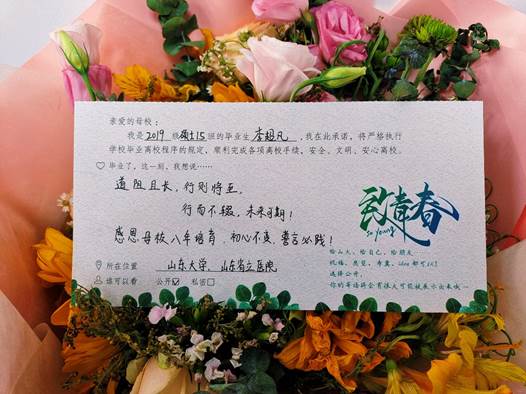 亲爱的母校：
我是 2019 级 硕士15 班的毕业生 李超凡 ，我在此承诺，将严格执行
学校毕业离校程序的规定，顺利完成各项离校手续，安全、文明、安心离校。
毕业了，这一刻，我想说……
道阻且长，行则将至，
行而不辍，未来可期！
感恩母校八年培育，初心不负，誓言必践！
所在位置 山东大学，山东省立医院
谁可以看 公开☑ 私密☐
致青春
So Young
给山大、给自己、给朋友
祝福、感觉、希冀、idea 都可以！
选择公开，
你的寄语将会有很大可能被展示出来哦—